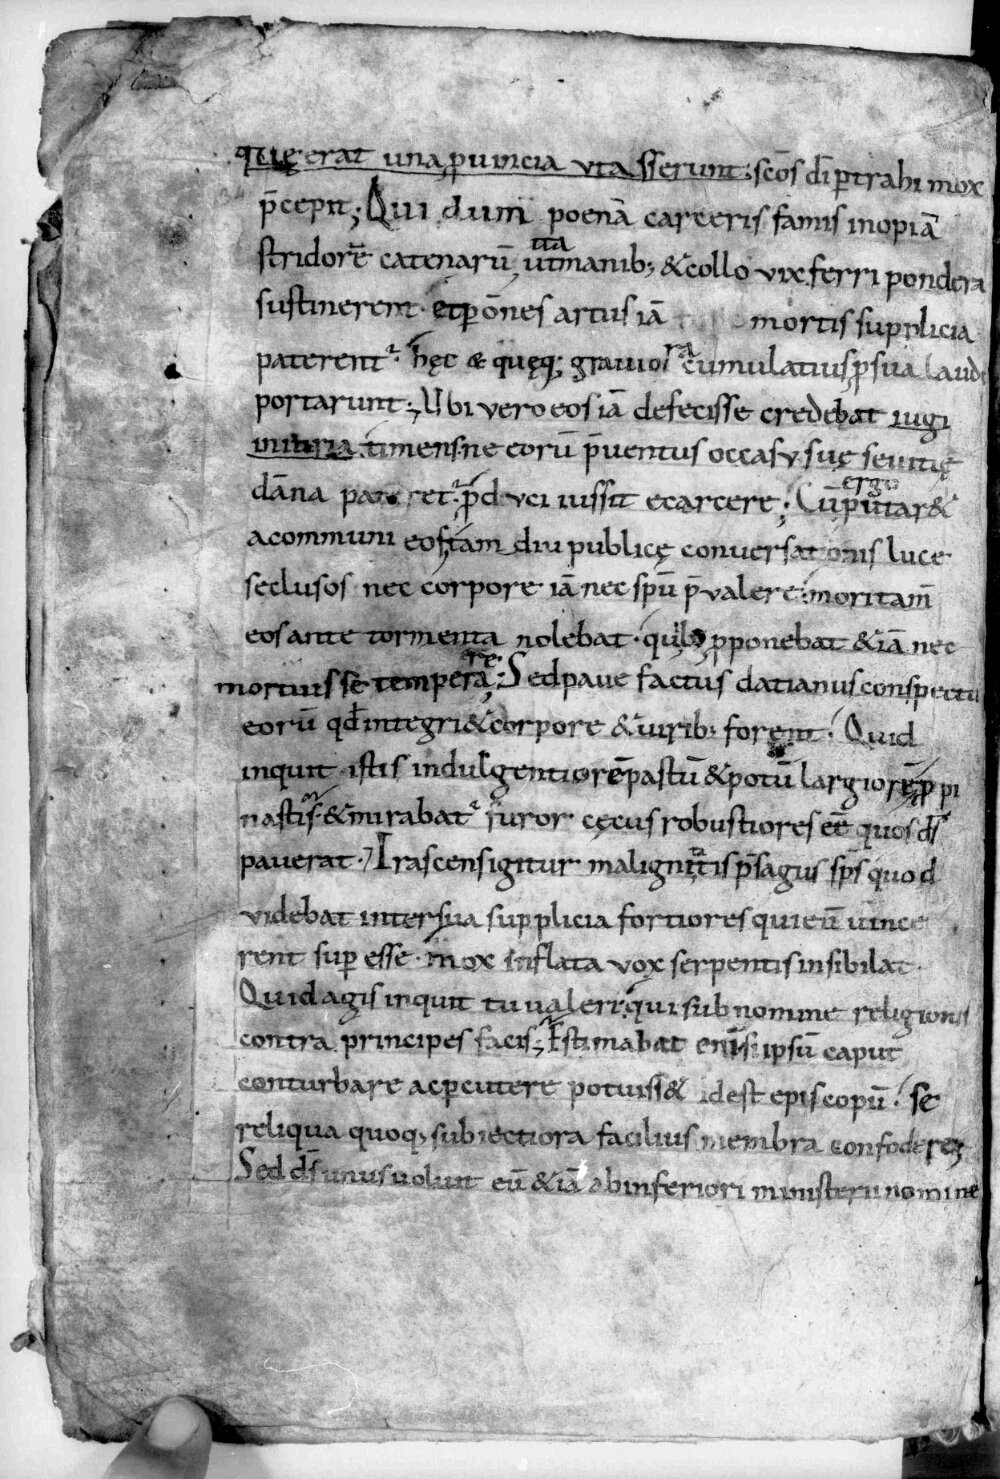 quę erat una ꝓuincia vt asserunt; sc̄os dī ꝑtrahi mox
p̄cepit; Qui dum poenā carceris famis inopiā
stridorē catenarū ita ut manib; & collo vix ferri pondera
sustinerent · et ꝑ om̄es artus iā mortis supplicia
paterent᷑ · hęc & quęq; grauiora cumulatius ꝓ sua laude
portarunt; Ubi vero eos iā defecisse credebat iugi
iniuria timens ne eorū p̄uentus occasu suę seuitię
dāna pat ret᷑ p̄duci iussit e carcere; Cū ergo putar&
a communi eos tam diu publicę conuersationis luce
seclusos nec corpore iā nec spū p̄valere mori tam̄
eos ante tormenta nolebat · ꝓponebat & iā nec
mortuis se temperare; Sed paue factus datianus conspectu
eorū qd̄ integri & corpore & uirib; forent · Quid
inquit istis indulgentiorē pastū & potū largiorē ꝓpi
nastis · & mirabat᷑ furor cęcus robustiores eē quos
pauerat · Irascens igitur malignitatis p̄sagus sp̄s quod
videbat inter sua supplicia fortiores qui eū uince
rent suꝑesse · mox inflata vox serpentis insibilat ·
Quid agis inquit tu valeri qui sub nomine religionis
contra principes facis; Estimabat enī si ipsū caput
conturbare ac ꝑcutere potuiss& id est episcopū · se
reliqua quoq; subiectiora facilius membra confodere;
Sed d̄s unus voluit eū & iā ab inferiori ministerii nomine